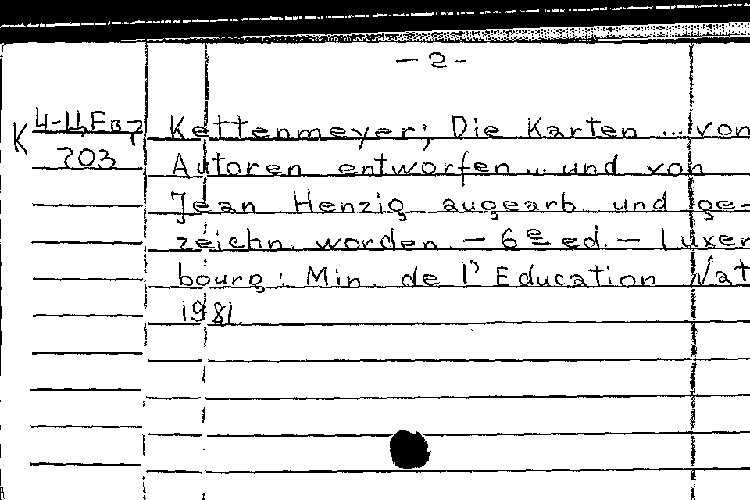 - 2 -
Kettenmeyer; Die Karten ... von
K 703 Autoren entworfen ... und von
Jean Henzig augearb und ge-
zeichn worden - 6e ed. - Luxem
bourg: Min. de l'Education Nat
1981